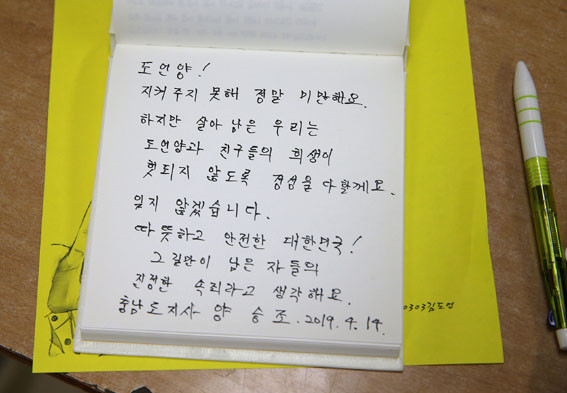 도언양!
지켜주지 못해 정말 미안해요.
하지만 살아 남은 우리는
도언양과 친구들의 희생이
헛되지 않도록 정성을 다할께요.
잊지 않겠습니다.
따뜻하고 안전한 대한민국!
그 길만이 남은 자들의
진정한 속죄라고 생각해요.
충남도지사 양 승 조. 2019. 4. 14.
0303김도언